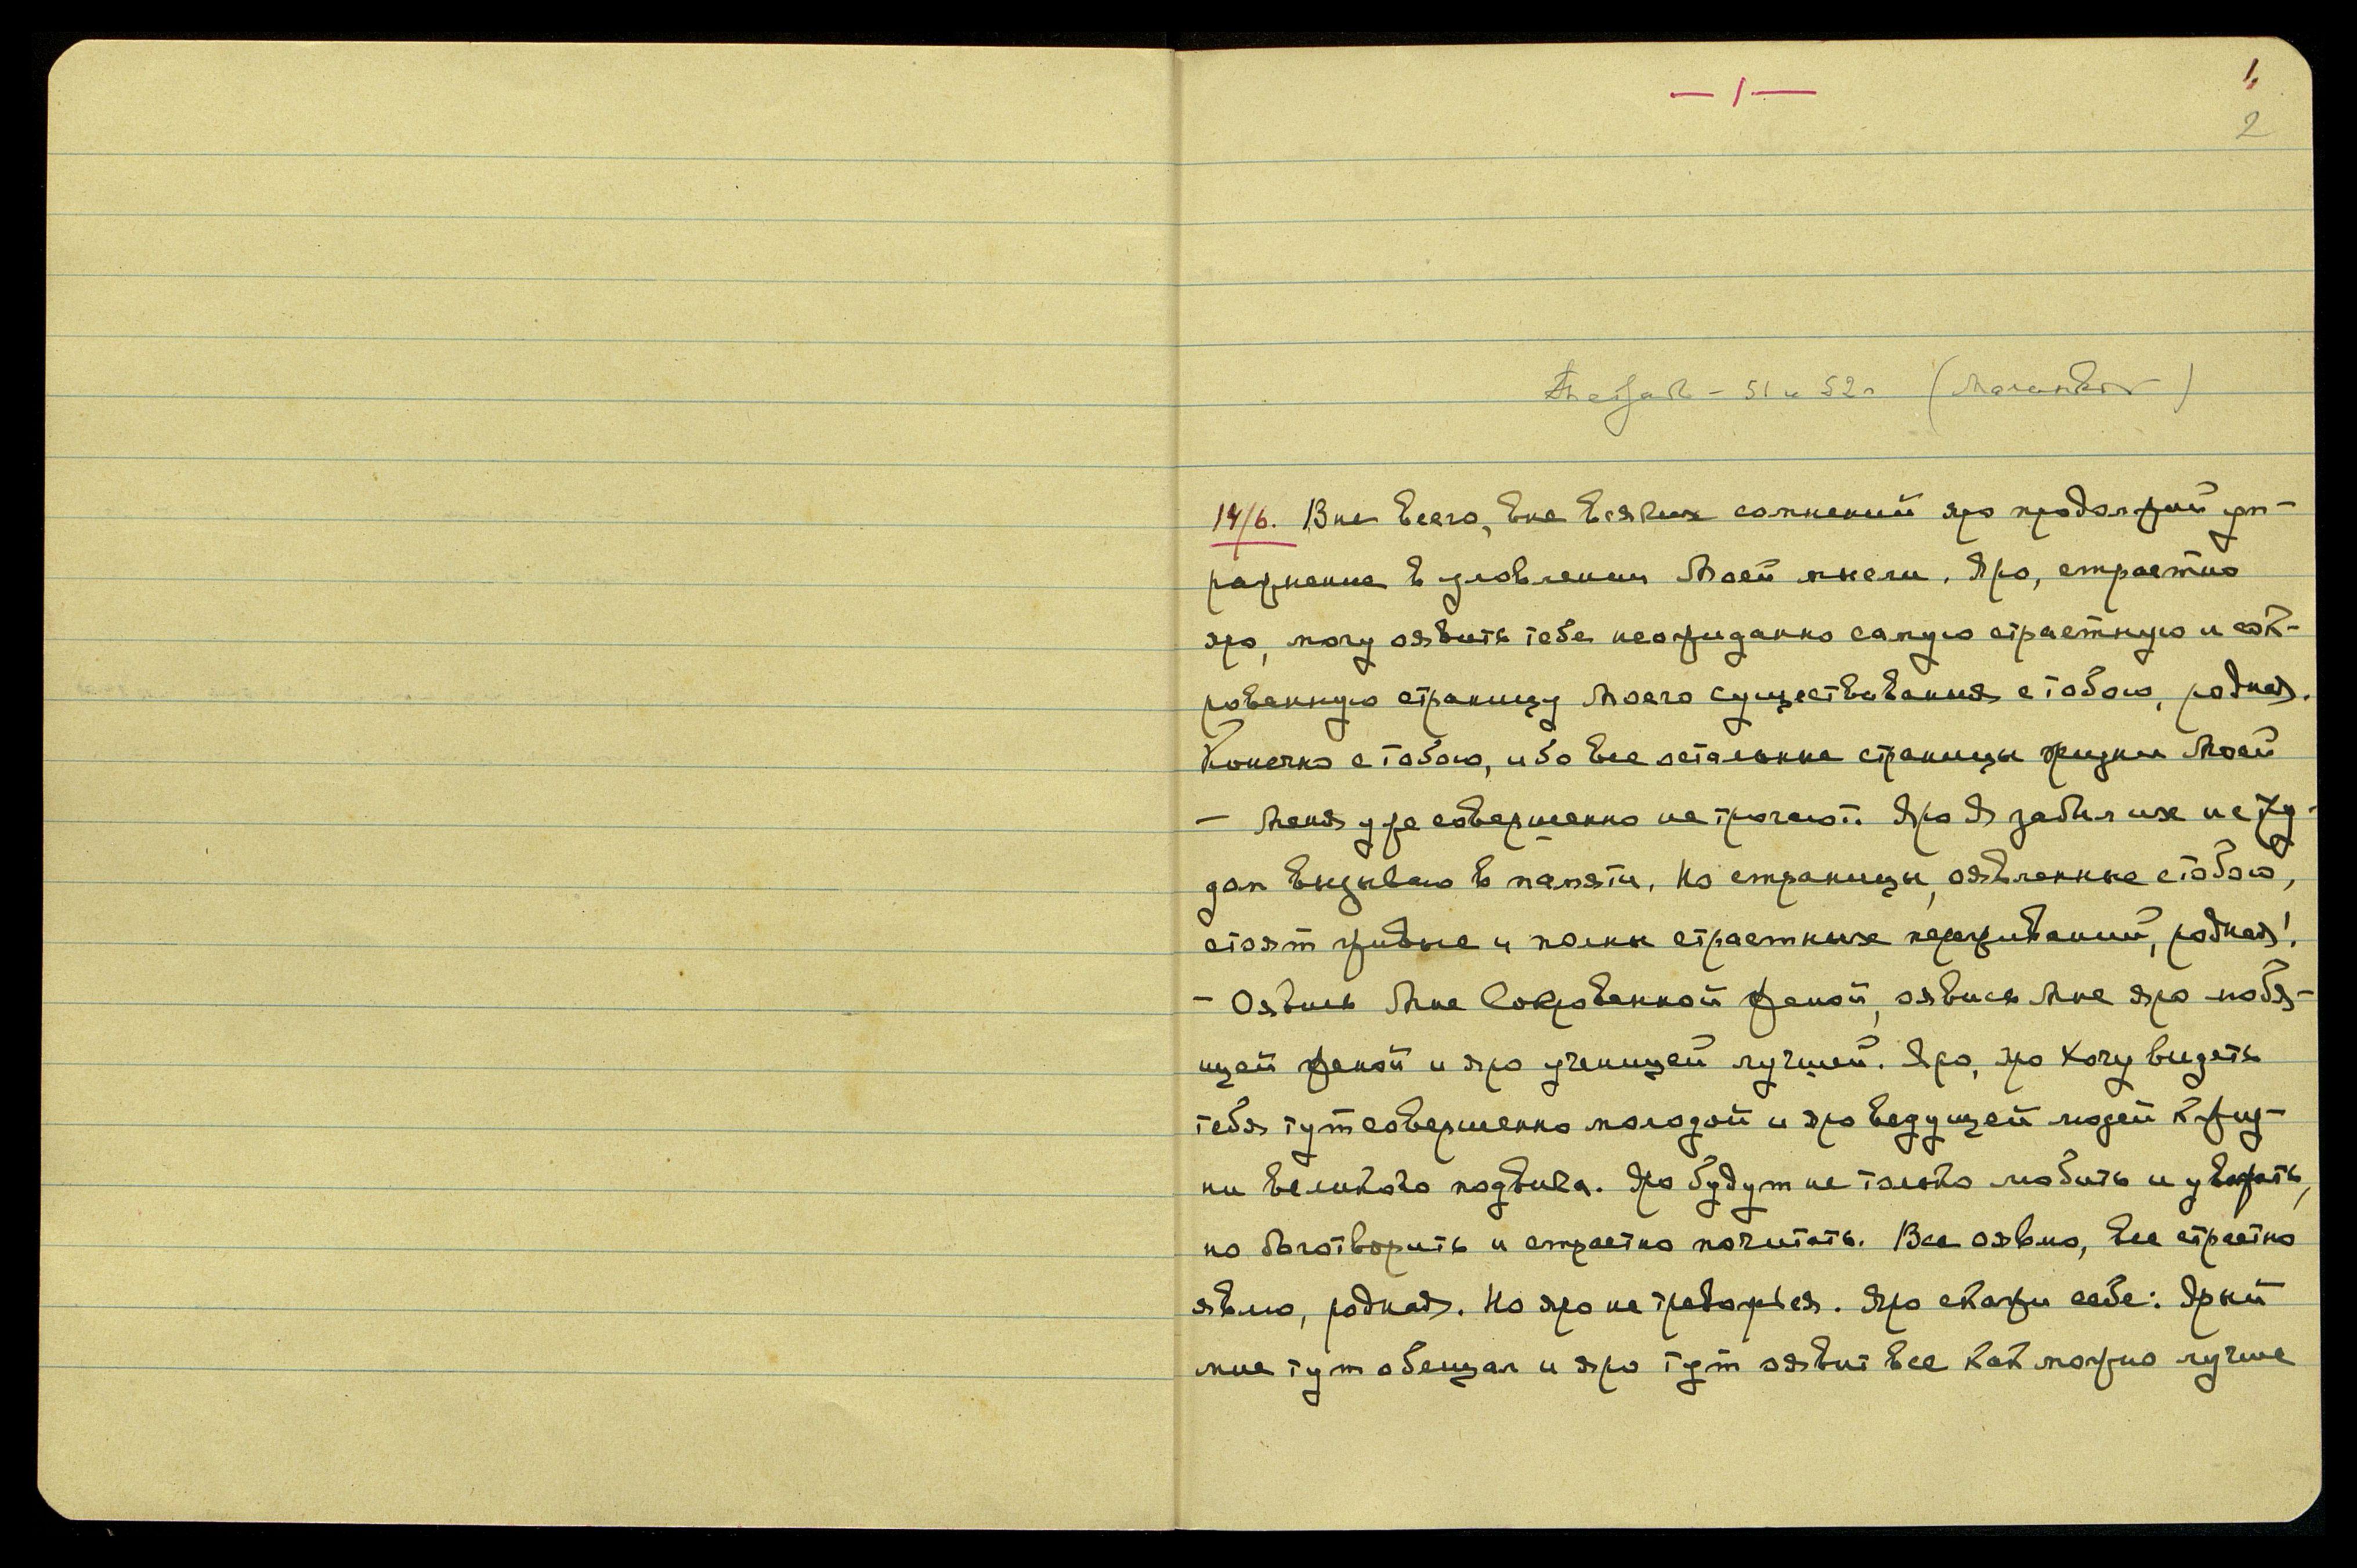 — 1 —
1.
2
Тетрадь - 51 и 52 г
14/6. Вне всего, вне всяких сомнений яро продолжай уп-
ражнение в уловлении Моей мысли. Яро, страстно
яро, могу оявить тебе неожиданно самую страстную и сок-
ровенную страницу Моего существования с тобою, родная.
Конечно с тобою, ибо все остальные страницы жизни Моей
— Меня уже совершенно не трогают. Яро Я забыл их и с тру-
дом вызываю в памяти. Но страницы, оявленные с тобою,
стоят живые и полны страстных переживаний, родная!
— Оявись Мне Сокровенной женой, оявись Мне яро любя-
щей женой и яро ученицей лучшей. Яро, яро хочу видеть
тебя тут совершенно молодой и яро ведущей людей к жиз-
ни великого подвига. Яро будут не только любить и уважать,
но боготворить и страстно почитать. Все оявлю, все страстно
явлю, родная. Но яро не тревожься. Яро скажи себе: Ярый
мне тут обещал и яро тут оявит все как можно лучше